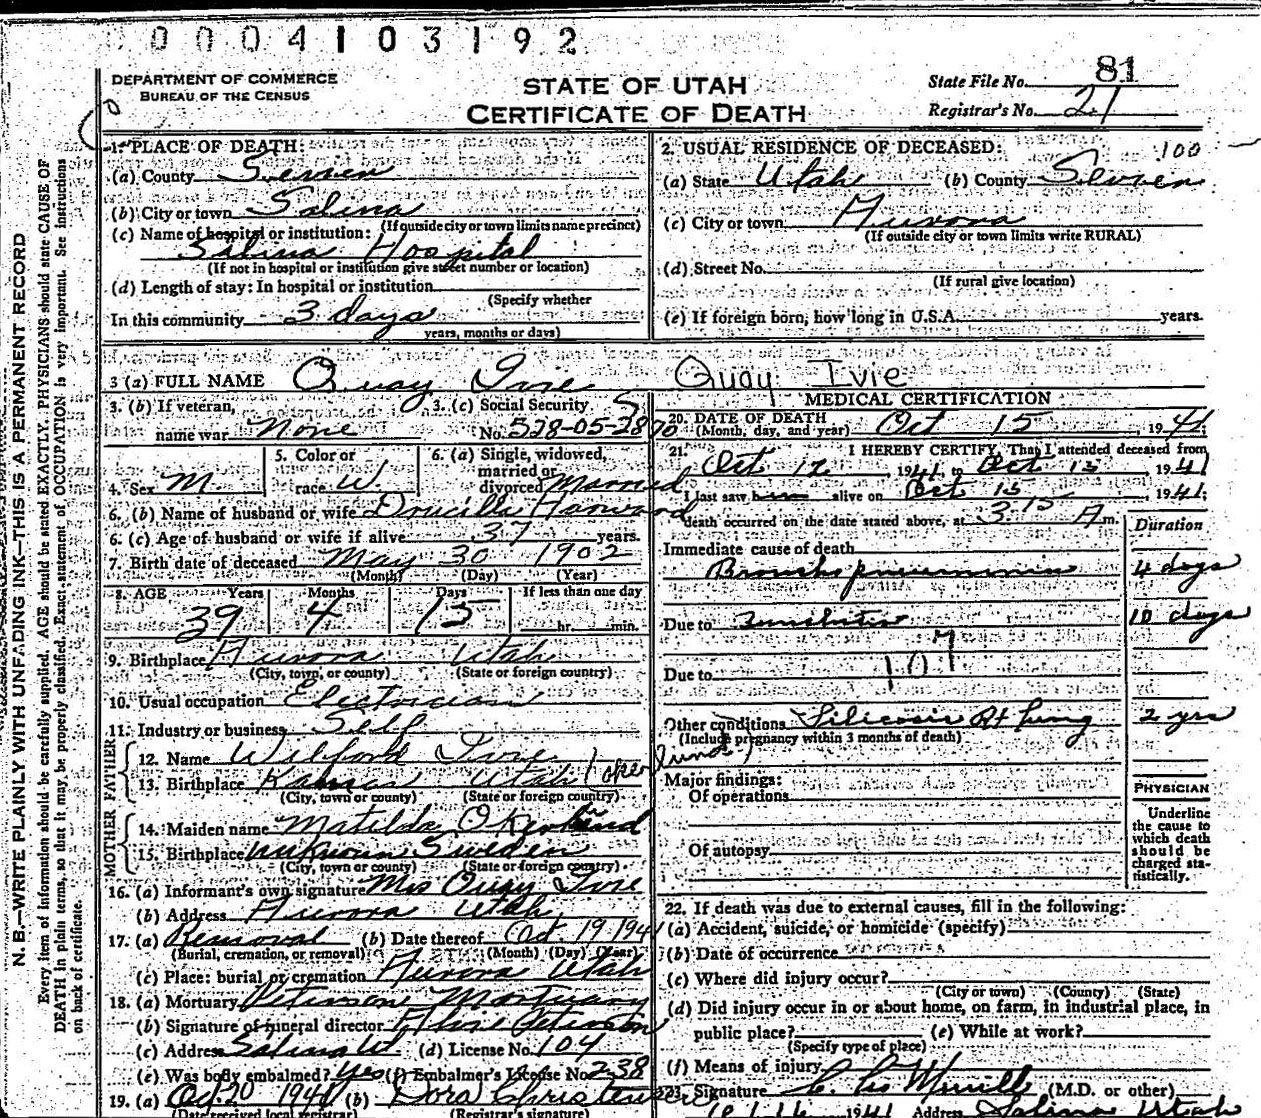 0004103192
DEPARTMENT OF COMMERCE
BUREAU OF THE CENSUS
STATE OF UTAH
CERTIFICATE OF DEATH
State File No. 81
Registrar's No. 21
1. PLACE OF DEATH:
(a) County Sevier
(b) City or town Salina
(If outside city or town limits name precinct)
(c) Name of hospital or institution:
Salina Hospital
(If not in hospital or institution give street number or location)
(d) Length of stay: In hospital or institution
(Specify whether
In this community 3 days
years, months or days)
2. USUAL RESIDENCE OF DECEASED: 100
(a) State Utah (b) County Sevier
(c) City or town Aurora
(If outside city or town limits write RURAL)
(d) Street No.
(If rural give location)
(e) If foreign born, how long in U.S.A. years.
3 (a) FULL NAME Quay Ivie Quay Ivie
3. (b) If veteran,
name war None
3. (c) Social Security
No. 528-05-2870
4. Sex M.
5. Color or
race W.
6. (a) Single, widowed,
married or
divorced Married
6. (b) Name of husband or wife Drucilla Harward
6. (c) Age of husband or wife if alive 37 years.
7. Birth date of deceased May 30 1902
(Month) (Day) (Year)
8. AGE Years Months Days If less than one day
39 4 15 hr. min.
9. Birthplace Aurora Utah
(City, town, or county) (State or foreign country)
10. Usual occupation Electrician
11. Industry or business Self
FATHER
12. Name Wilford Ivie
13. Birthplace Utah
(City, town or county) (State or foreign country)
MOTHER
14. Maiden name Matilda Okerlund
15. Birthplace unknown Sweden
(City, town or county) (State or foreign country)
16. (a) Informant's own signature Mrs Quay Ivie
(b) Address Aurora Utah
17. (a) Removal (b) Date thereof Oct. 19 1941
(Burial, cremation, or removal) (Month) (Day) (Year)
(c) Place: burial or cremation Aurora Utah
18. (a) Mortuary Mortuary
(b) Signature of funeral director
(c) Address Salina Ut. (d) License No. 104
(e) Was body embalmed? Yes (f) Embalmer's License No. 238
19. (a) Oct. 20 1941 (b) Dora Christensen
(Date received local registrar) (Registrar's signature)
MEDICAL CERTIFICATION
20. DATE OF DEATH
(Month, day, and year) Oct 15, 1941
21. I HEREBY CERTIFY, That I attended deceased from
Oct 12 1941, to Oct 15 1941
I last saw him alive on Oct 15, 1941;
death occurred on the date stated above, at 3:15 A m.
Duration
Immediate cause of death
Bronchopneumonia 4 days
Due to Bronchitis 10 days
107
Due to
Other conditions Silicosis Rt lung 2 yrs
(Include pregnancy within 3 months of death)
Major findings:
Of operations
Of autopsy
PHYSICIAN
Underline
the cause to
which death
should be
charged sta-
tistically.
22. If death was due to external causes, fill in the following:
(a) Accident, suicide, or homicide (specify)
(b) Date of occurrence
(c) Where did injury occur?
(City or town) (County) (State)
(d) Did injury occur in or about home, on farm, in industrial place, in
public place? (e) While at work?
(Specify type of place)
(f) Means of injury
23. Signature (M.D. or other)
1941 Address Salina Utah
N. B.—WRITE PLAINLY WITH UNFADING INK—THIS IS A PERMANENT RECORD
Every item of information should be carefully supplied. AGE should be stated EXACTLY. PHYSICIANS should state CAUSE OF
DEATH in plain terms, so that it may be properly classified. Exact statement of OCCUPATION is very important. See instructions
on back of certificate.